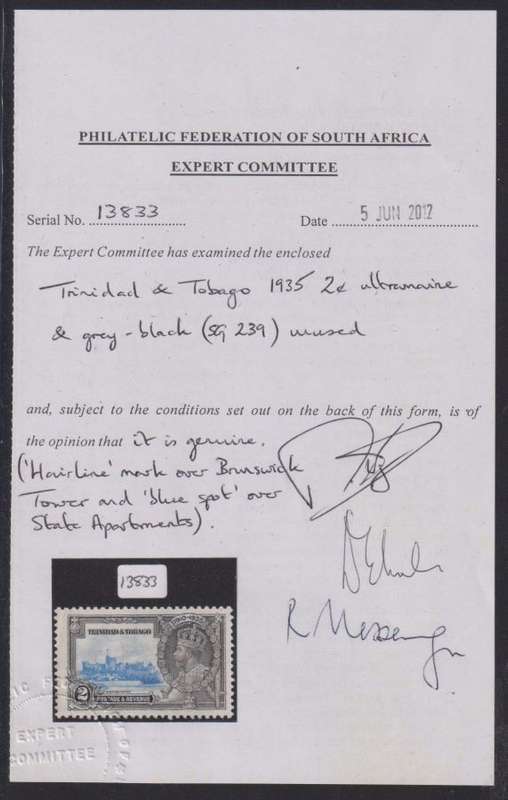 PHILATELIC FEDERATION OF SOUTH AFRICA
EXPERT COMMITTEE
Serial No. 13833 Date 5 JUN 2012
The Expert Committee has examined the enclosed
Trinidad & Tobago 1935 2c ultramarine
& grey-black (SG 239) unused
and, subject to the conditions set out on the back of this form, is of
the opinion that it is genuine.
('Hairline' mark over Brunswick
Tower and 'blue spot' over
State Apartments).
R Messenger
13833
TRINIDAD & TOBAGO
2c
POSTAGE & REVENUE
EXPERT
COMMITTEE